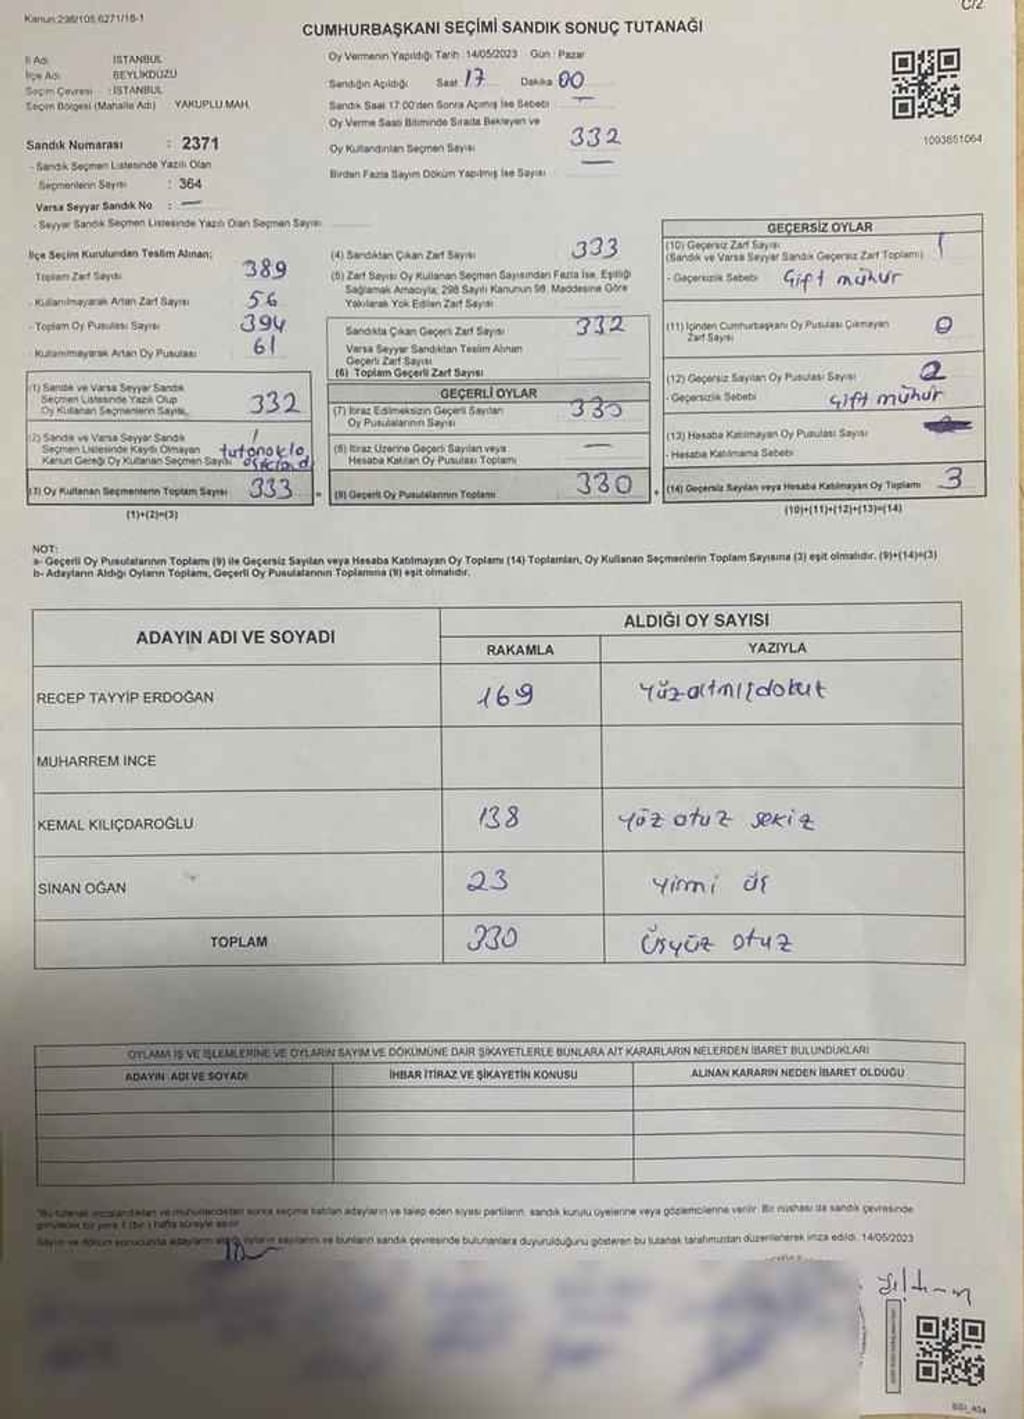 Kanun:298/105.6271/18-1
C/2
CUMHURBAŞKANI SEÇİMİ SANDIK SONUÇ TUTANAĞI
İl Adı İSTANBUL
İlçe Adı BEYLİKDÜZÜ
Seçim Çevresi : İSTANBUL
Seçim Bölgesi (Mahalle Adı) YAKUPLU MAH.
Sandık Numarası : 2371
- Sandık Seçmen Listesinde Yazılı Olan
Seçmenlerin Sayısı : 364
Varsa Seyyar Sandık No : —
- Seyyar Sandık Seçmen Listesinde Yazılı Olan Seçmen Sayısı
Oy Vermenin Yapıldığı Tarih : 14/05/2023 Gün : Pazar
Sandığın Açıldığı Saat 17 Dakika 00
Sandık Saat 17:00'den Sonra Açılmış İse Sebebi —
Oy Verme Saati Bitiminde Sırada Bekleyen ve
Oy Kullandırılan Seçmen Sayısı 332
Birden Fazla Sayım Döküm Yapılmış İse Sayısı —
1003651064
İlçe Seçim Kurulundan Teslim Alınan;
Toplam Zarf Sayısı 389
- Kullanılmayarak Artan Zarf Sayısı 56
- Toplam Oy Pusulası Sayısı 394
- Kullanılmayarak Artan Oy Pusulası 61
(1) Sandık ve Varsa Seyyar Sandık
Seçmen Listesinde Yazılı Olup
Oy Kullanan Seçmenlerin Sayısı 332
(2) Sandık ve Varsa Seyyar Sandık
Seçmen Listesinde Kaydı Olmayan
Kanun Gereği Oy Kullanan Seçmen Sayısı 1 tutanakla
(3) Oy Kullanan Seçmenlerin Toplam Sayısı 333
(1)+(2)=(3)
(4) Sandıktan Çıkan Zarf Sayısı 333
(5) Zarf Sayısı Oy Kullanan Seçmen Sayısından Fazla İse, Eşitliği
Sağlamak Amacıyla; 298 Sayılı Kanunun 98. Maddesine Göre
Yakılarak Yok Edilen Zarf Sayısı
Sandıkta Çıkan Geçerli Zarf Sayısı 332
Varsa Seyyar Sandıktan Teslim Alınan
Geçerli Zarf Sayısı
(6) Toplam Geçerli Zarf Sayısı
GEÇERLİ OYLAR
(7) İtiraz Edilmeksizin Geçerli Sayılan
Oy Pusulalarının Sayısı 330
(8) İtiraz Üzerine Geçerli Sayılan veya
Hesaba Katılan Oy Pusulası Toplamı —
(9) Geçerli Oy Pusulalarının Toplamı 330
GEÇERSİZ OYLAR
(10) Geçersiz Zarf Sayısı 1
(Sandık ve Varsa Seyyar Sandık Geçersiz Zarf Toplamı)
- Geçersizlik Sebebi Çift mühür
(11) İçinden Cumhurbaşkanı Oy Pusulası Çıkmayan
Zarf Sayısı 0
(12) Geçersiz Sayılan Oy Pusulası Sayısı 2
- Geçersizlik Sebebi Çift mühür
(13) Hesaba Katılmayan Oy Pusulası Sayısı
- Hesaba Katılmama Sebebi
(14) Geçersiz Sayılan veya Hesaba Katılmayan Oy Toplamı 3
(10)+(11)+(12)+(13)=(14)
NOT:
a- Geçerli Oy Pusulalarının Toplamı (9) ile Geçersiz Sayılan veya Hesaba Katılmayan Oy Toplamı (14) Toplamları, Oy Kullanan Seçmenlerin Toplam Sayısına (3) eşit olmalıdır. (9)+(14)=(3)
b- Adayların Aldığı Oyların Toplamı, Geçerli Oy Pusulalarının Toplamına (9) eşit olmalıdır.
ADAYIN ADI VE SOYADI
ALDIĞI OY SAYISI
RAKAMLA YAZIYLA
RECEP TAYYİP ERDOĞAN 169 Yüzaltmışdokuz
MUHARREM İNCE
KEMAL KILIÇDAROĞLU 138 Yüz otuz sekiz
SİNAN OĞAN 23 Yirmi üç
TOPLAM 330 Üçyüz otuz
OYLAMA İŞ VE İŞLEMLERİNE VE OYLARIN SAYIM VE DÖKÜMÜNE DAİR ŞİKAYETLERLE BUNLARA AİT KARARLARIN NELERDEN İBARET BULUNDUKLARI
ADAYIN ADI VE SOYADI İHBAR İTİRAZ VE ŞİKAYETİN KONUSU ALINAN KARARIN NEDEN İBARET OLDUĞU
seçime katılan adayların ve talep eden siyasi partilerin, sandık kurulu üyelerine veya gözlemcilerine verilir. Bir nüshası da sandık çevresinde
görülebilir bir yere 1 (bir) hafta süreyle asılır.
Sayım ve döküm sonucunda adayların aldığı oyların sayılarını ve bunların sandık çevresinde bulunanlara duyurulduğunu gösteren bu tutanak tarafımızdan düzenlenerek imza edildi. 14/05/2023